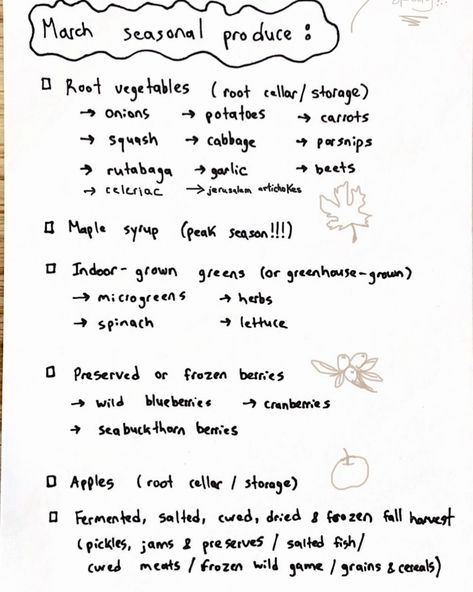 March seasonal produce :
☐ Root vegetables (root cellar/storage)
→ onions → potatoes → carrots
→ squash → cabbage → parsnips
→ rutabaga → garlic → beets
→ celeriac → jerusalem artichokes
☐ Maple syrup (peak season!!!)
☐ Indoor-grown greens (or greenhouse-grown)
→ microgreens → herbs
→ spinach → lettuce
☐ Preserved or frozen berries
→ wild blueberries → cranberries
→ seabuckthorn berries
☐ Apples (root cellar / storage)
☐ Fermented, salted, cured, dried & frozen fall harvest
(pickles, jams & preserves / salted fish/
cured meats / frozen wild game / grains & cereals)